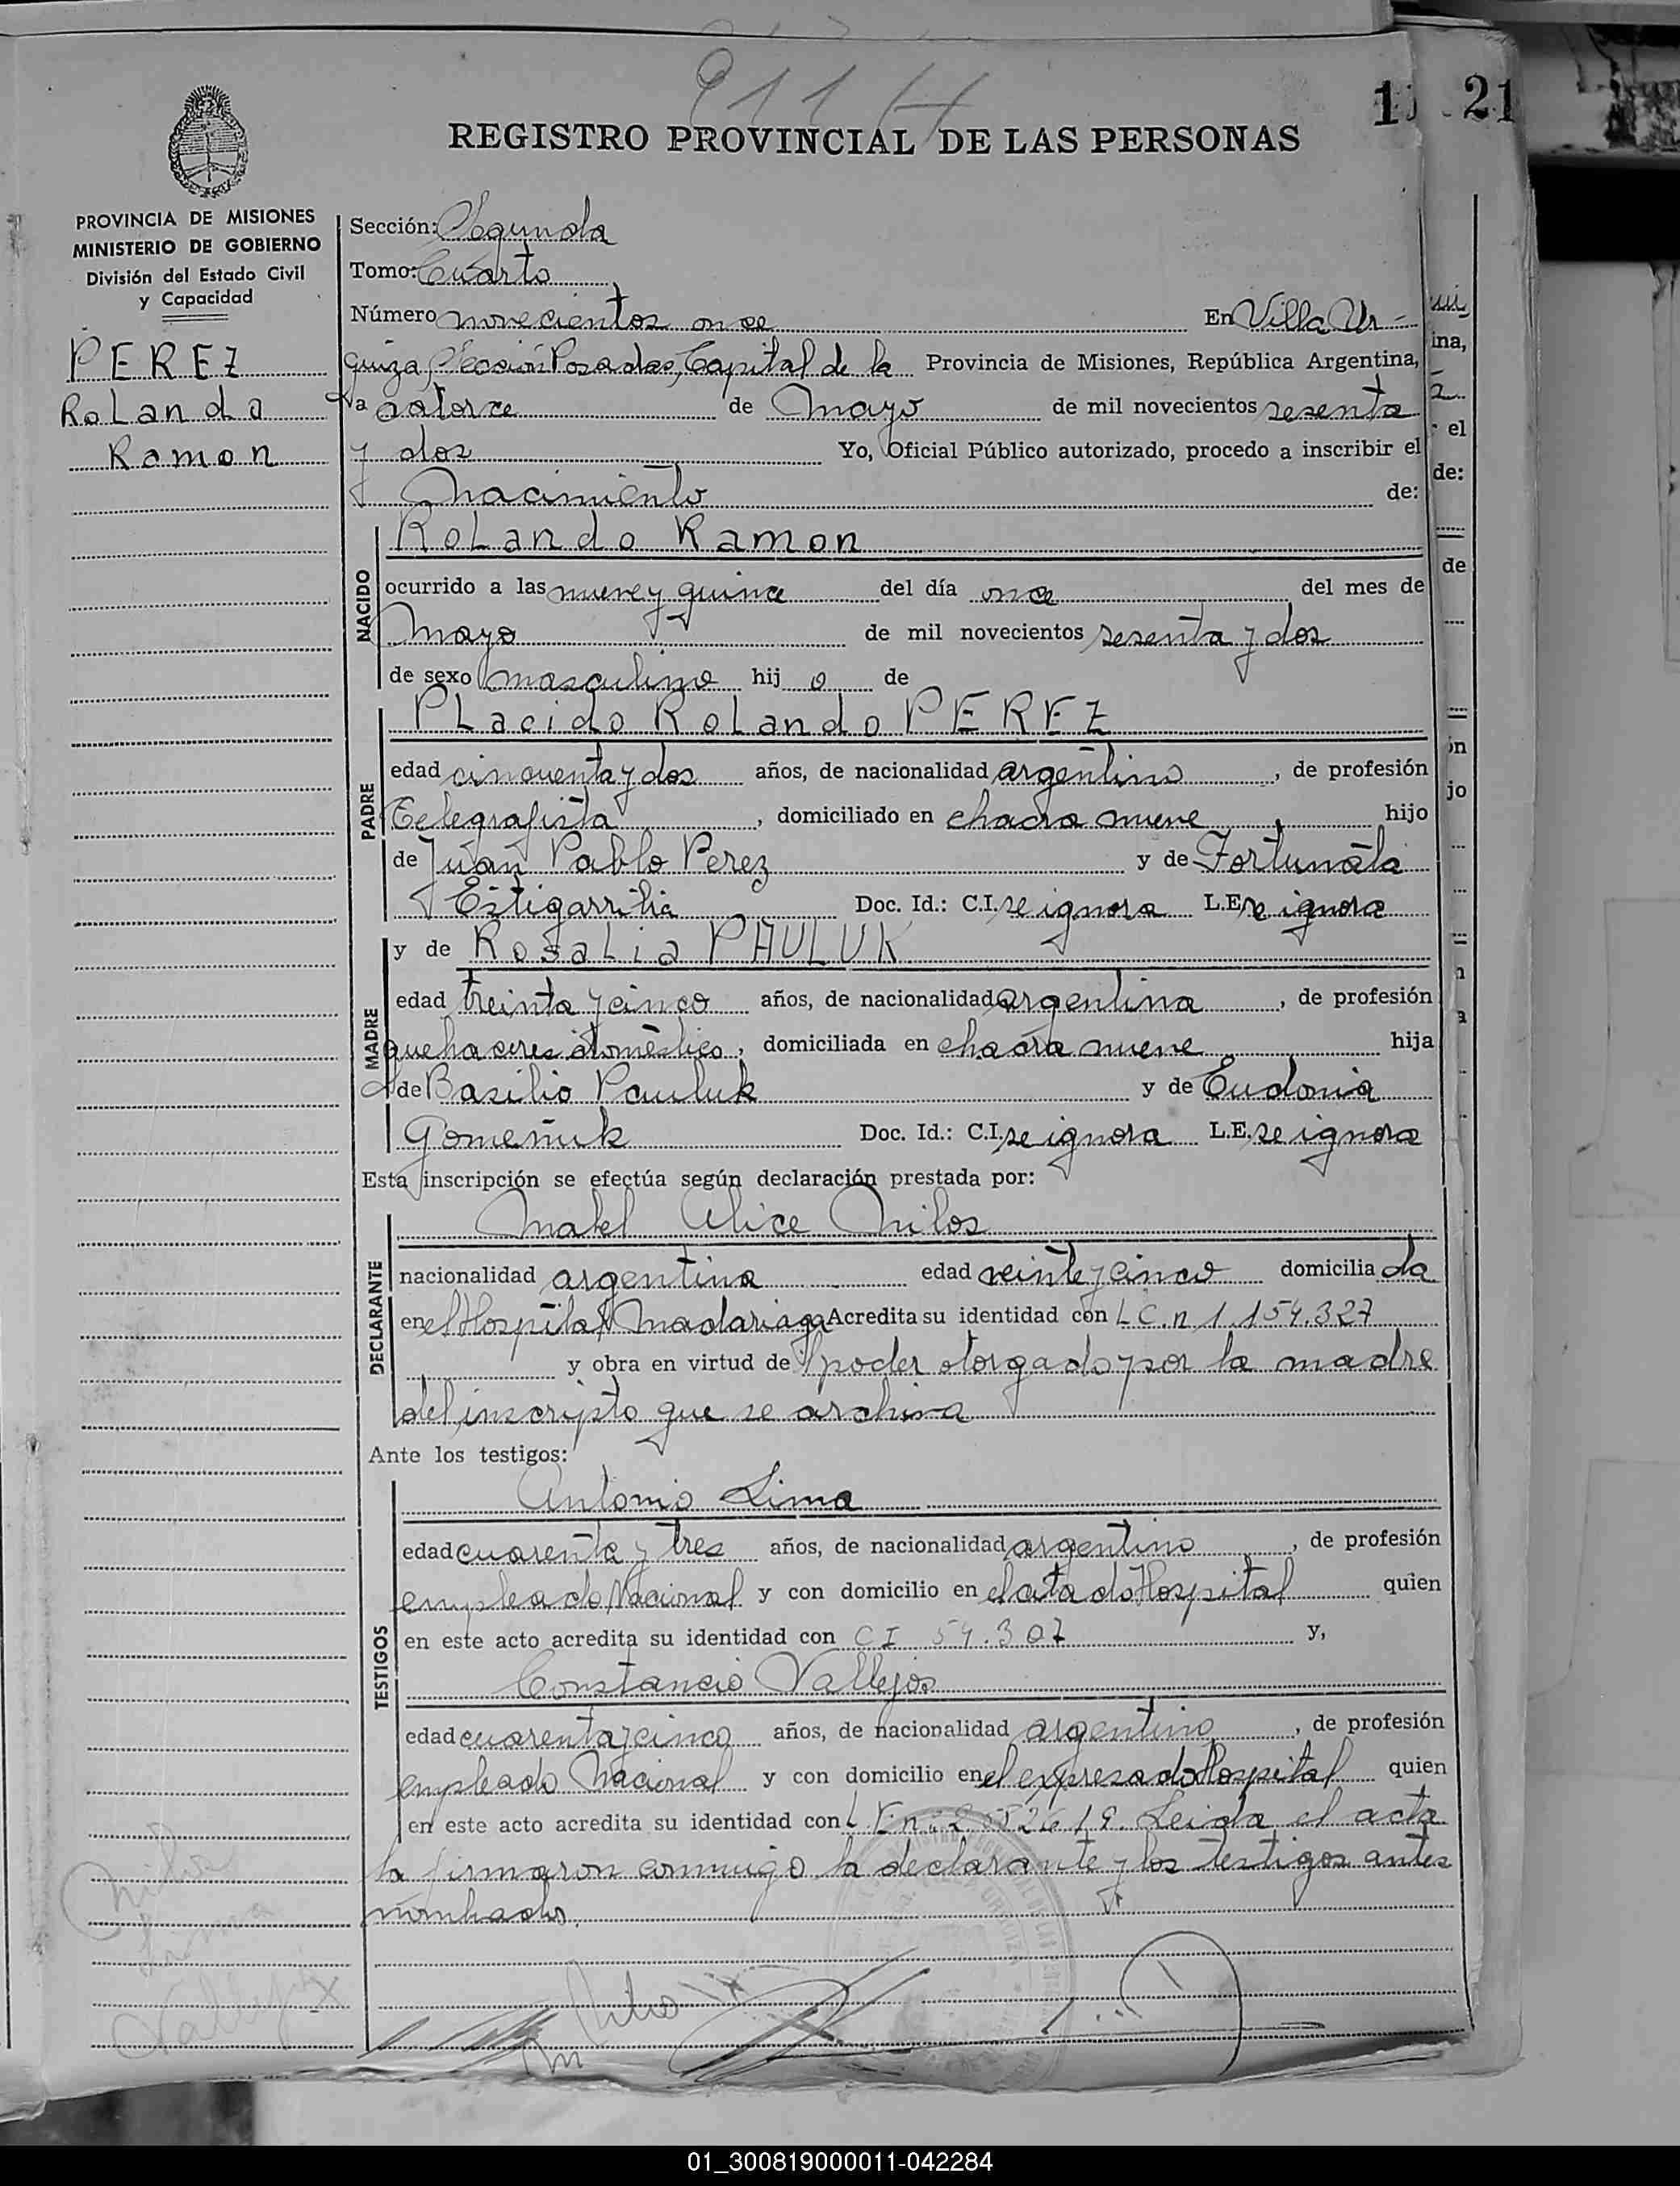 911 H
1 21
REGISTRO PROVINCIAL DE LAS PERSONAS
PROVINCIA DE MISIONES
MINISTERIO DE GOBIERNO
División del Estado Civil
y Capacidad
PEREZ
RoLando
Ramon
Sección: Segunda
Tomo: Cuarto
Número novecientos once En Villa Ur-
quiza, Sección Posadas, Capital de la Provincia de Misiones, República Argentina,
a catorce de Mayo de mil novecientos sesenta
y dos Yo, Oficial Público autorizado, procedo a inscribir el
Nacimiento de:
NACIDO
RoLando Ramon
ocurrido a las nueve y quince del día once del mes de
Mayo de mil novecientos sesenta y dos
de sexo masculino hijo de
PADRE
PLacido RoLando PEREZ
edad cincuenta y dos años, de nacionalidad argentino, de profesión
Telegrafista, domiciliado en chacra nueve hijo
de Juan Pablo Perez y de Fortunata
Estigarribia Doc. Id.: C.I. se ignora L.E. se ignora
MADRE
y de RosaLia PAULUK
edad treinta y cinco años, de nacionalidad argentina, de profesión
quehaceres doméstico, domiciliada en chacra nueve hija
de Basilio Pauluk y de Eudonia
Gomeñuk Doc. Id.: C.I. se ignora L.E. se ignora
Esta inscripción se efectúa según declaración prestada por:
DECLARANTE
Mabel Alice Milos
nacionalidad argentina edad veinte y cinco domiciliada
en el Hospital Madariaga Acredita su identidad con L C. n 1.154.327
y obra en virtud de poder otorgado por la madre
del inscripto que se archiva
Ante los testigos:
TESTIGOS
Antonio Lima
edad cuarenta y tres años, de nacionalidad argentino, de profesión
empleado Nacional y con domicilio en el citado Hospital quien
en este acto acredita su identidad con CI 54.307 y,
Constancio Vallejos
edad cuarenta y cinco años, de nacionalidad argentino, de profesión
empleado Nacional y con domicilio en el expresado Hospital quien
en este acto acredita su identidad con L E. n Leida el acta
la firmaron conmigo la declarante y los testigos antes
nombrados.
Milos
Lima
Vallejos
01_300819000011-042284